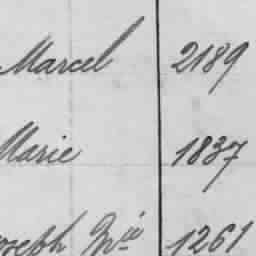 Marcel 2189
Marie 1837
Joseph Mie 1261